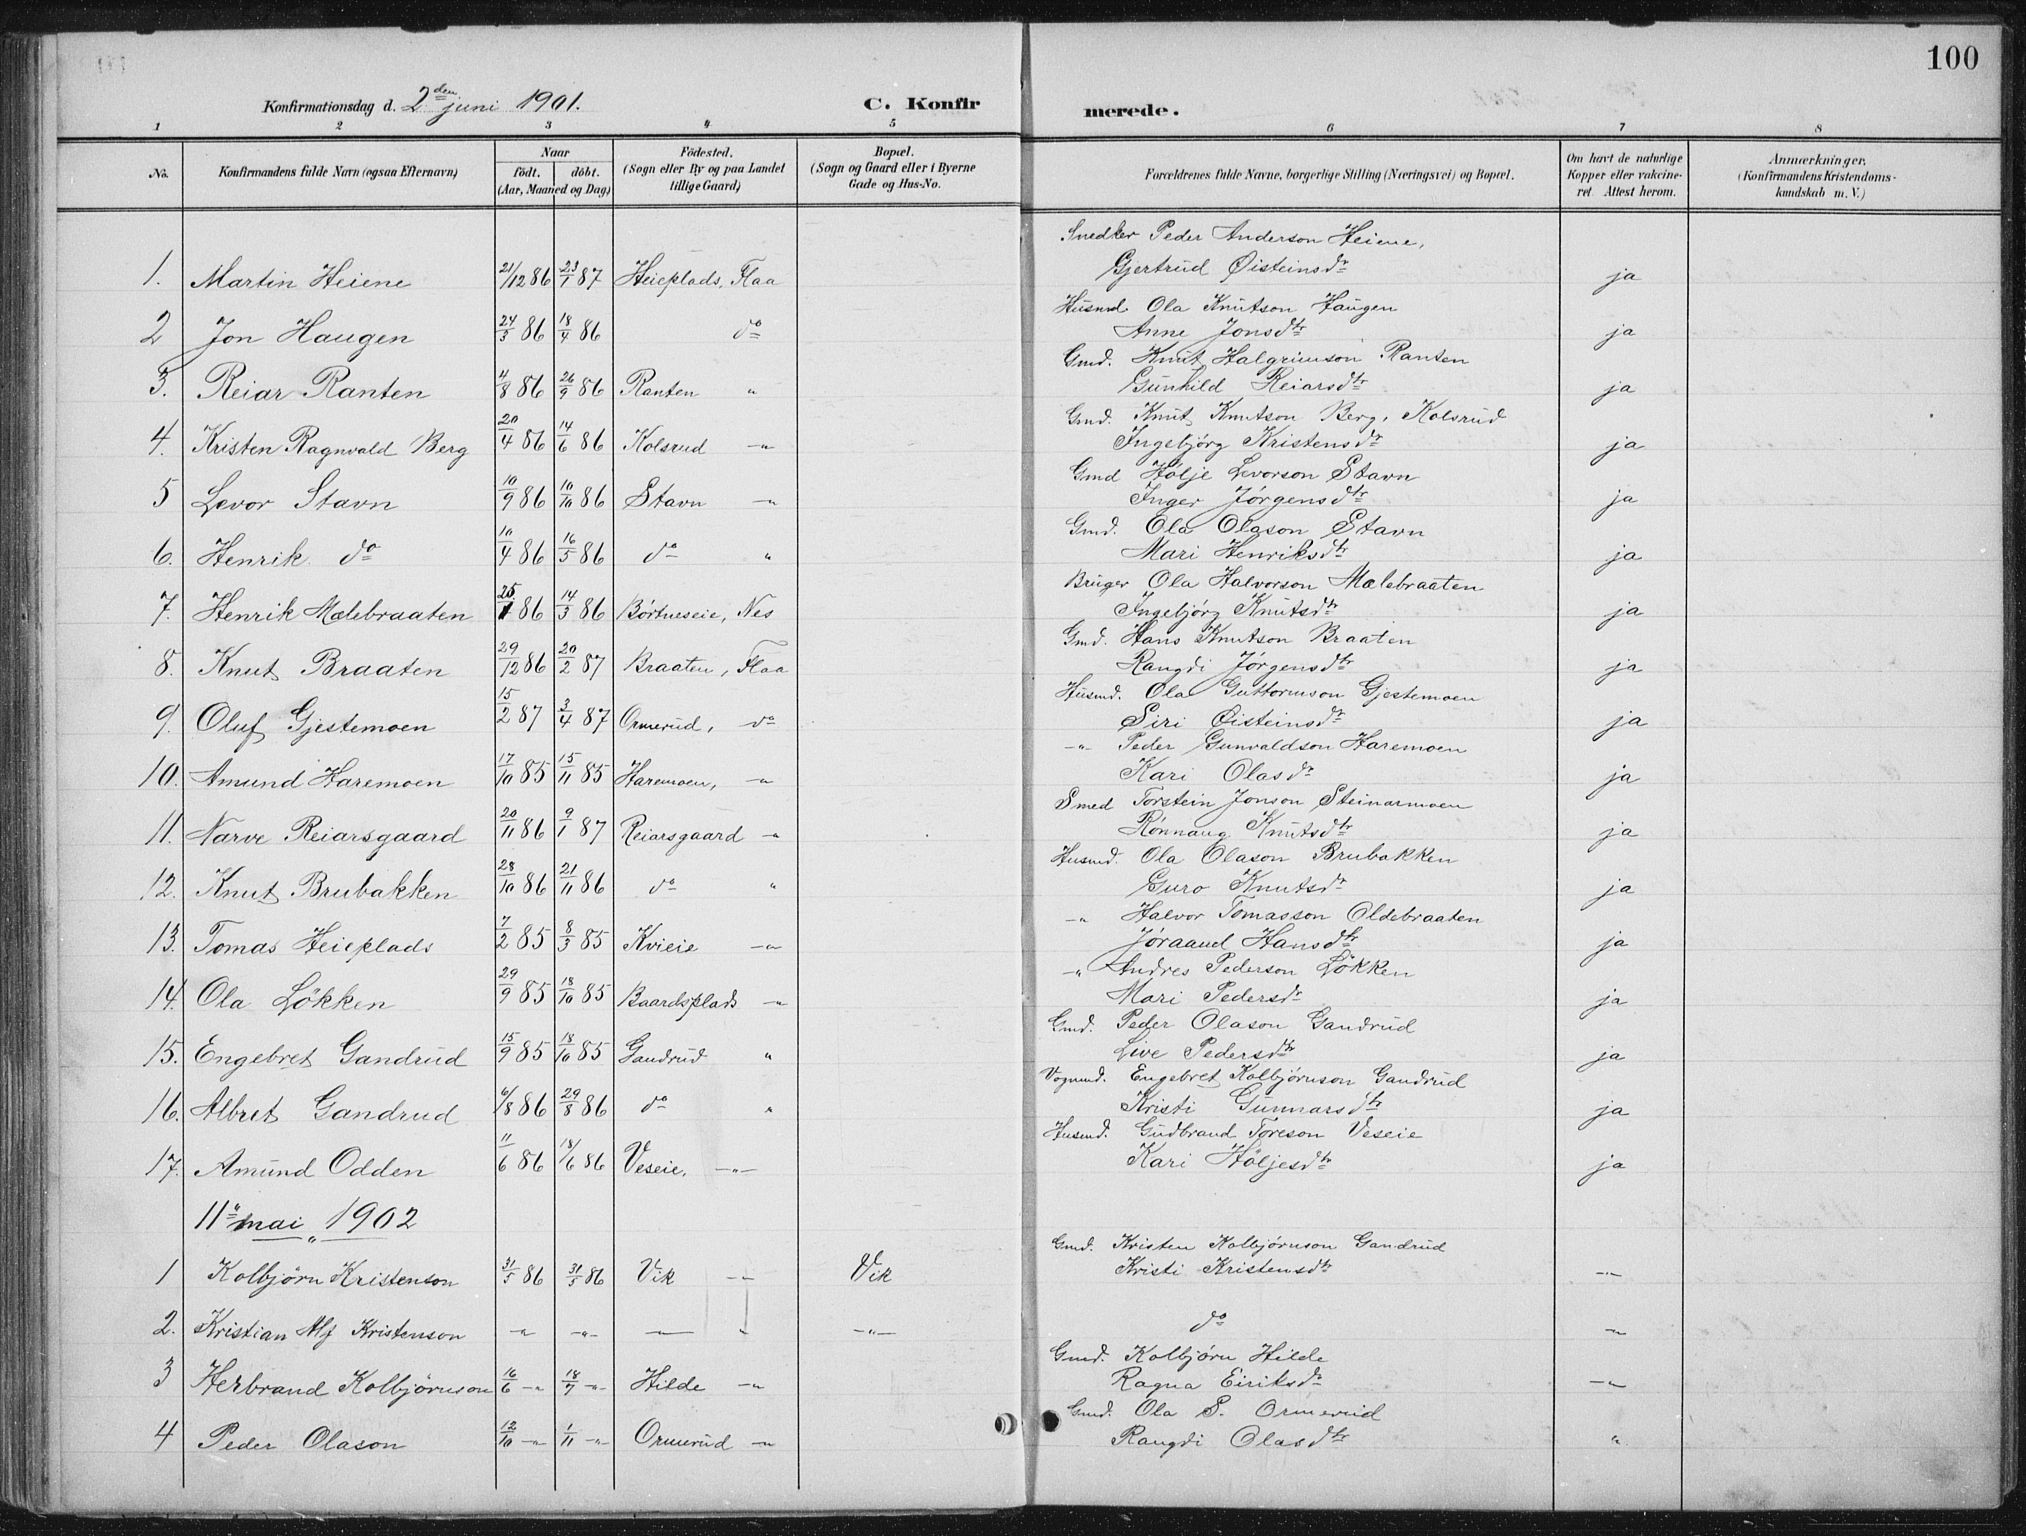 100
Konfirmationsdag d. 2den juni 1901. C. Konfirmerede.
1 2 3 4 5 6 7 8
No. Konfirmandens fulde Navn (ogsaa Efternavn) Naar født. døbt. (Aar, Maaned og Dag) Födested. (Sogn eller By og paa Landet tillige Gaard) Bopæl. (Sogn og Gaard eller i Byerne Gade og Hus-No. Forældrenes fulde Navne, borgerlige Stilling (Næringsvei) og Bopæl. Om havt de naturlige Kopper eller vakcineret. Attest herom. Anmærkninger. (Konfirmandens Kristendomskundskab m. V.)
1. Martin Heiene 21/12 86 23/1 87 Heieplads, Flaa Snedker Peder Anderson Heiene, Gjertrud Øisteinsdr ja
2 Jon Haugen 24/3 86 18/4 86 do Husmd. Ola Knutson Haugen Anne Jonsdtr ja
3. Reiar Ranten 4/8 86 26/9 86 Ranten " Gmd. Knut Halgrimson Ranten Gunhild Reiarsdtr ja
4. Kristen Ragnvald Berg 20/4 86 14/6 86 Kolsrud -"- Gmd. Knut Knutson Berg, Kolsrud Ingebjørg Kristensdr ja
5 Levor Stavn 10/9 86 10/10 86 Stavn -"- Gmd Hølje Levorson Stavn Inger Jørgensdtr ja
6. Henrik do 10/4 86 16/5 86 do " Gmd. Ola Olason Stavn Mari Henriksdtr ja
7. Henrik Mælebraaten 25/1 86 14/3 86 Børtneseie, Nes Bruger Ola Halvorson Mælebraaten Ingebjørg Knutsdtr ja
8. Knut Braaten 29/12 86 20/2 87 Braaten, Flaa Gmd. Hans Knutson Braaten Rangdi Jørgensdtr ja
9. Oluf Gjestemoen 15/2 87 3/4 87 Ormerud, do Husmd. Ola Guttormson Gjestemoen Siri Øisteinsdr ja
10. Amund Haremoen 17/10 85 15/11 85 Haremoen, -"- -"- Peder Gunvaldson Haremoen Kari Olasdr ja
11. Narve Reiarsgaard 20/11 86 9/1 87 Reiarsgaard -"- Smed Torstein Jonson Steinarmoen Rønnaug Knutsdtr ja
12. Knut Brubakken 28/10 86 21/11 86 do " Husmd. Ola Olason Brubakken Guro Knutsdr ja
13. Tomas Heieplads 7/2 85 8/3 85 Kvieie -"- -"- Halvor Tomasson Oldebraaten Jøraand Hansdtr ja
14. Ola Løkken 29/9 85 18/10 85 Baardsplads -"- -"- Andres Pederson Løkken Mari Pedersdr ja
15. Engebret Gandrud 15/9 85 18/10 85 Gandrud " Gmd. Peder Olason Gandrud Live Pedersdtr ja
16. Albret Gandrud 6/8 86 29/8 86 do " Vognmd. Engebret Kolbjørnson Gandrud Kristi Gunnarsdtr ja
17. Amund Odden 11/6 86 18/6 86 Veseie, -"- Husmd. Gudbrand Toreson Veseie Kari Høljesdtr ja
11te mai 1902
1 Kolbjørn Kristenson 31/5 86 31/5 86 Vik -"- Vik Gmd. Kristen Kolbjørnson Gandrud Kristi Kristensdtr -"-
2. Kristian Alf Kristenson -"- -"- -"- " -"- do -"-
3 Herbrand Kolbjørnson 16/6 -"- 18/7 -"- Hilde -"- Gmd. Kolbjørn Hilde Ragna Eiriksdr -"-
4 Peder Olason 12/10 -"- 1/11 -"- Ormerud -"- Gmd. Ola S. Ormerud Rangdi Olasdtr "